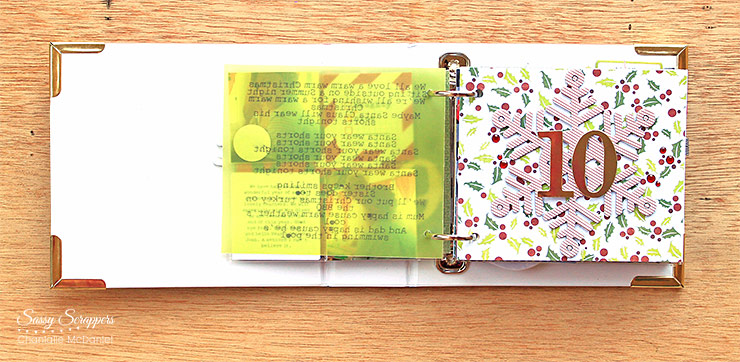 We love a warm warm Christmas
Sitting outside on a Summer night
We're all wishing for a warm warm
Christmas
Maybe Santa Claus will wear his
shorts tonight
Santa wear your shorts
Santa wear your shorts tonight
Santa wear your shorts
Santa wear your shorts
Santa wear your shorts tonight
Brother keeps smiling
Sister does too
We'll put our Christmas turkey on
the BBQ
Mum is happy cause warm weather's
cool
And dad is happy cause he's
swimming in the pool
10
Sassy Scrappers
Chantalle McDaniel